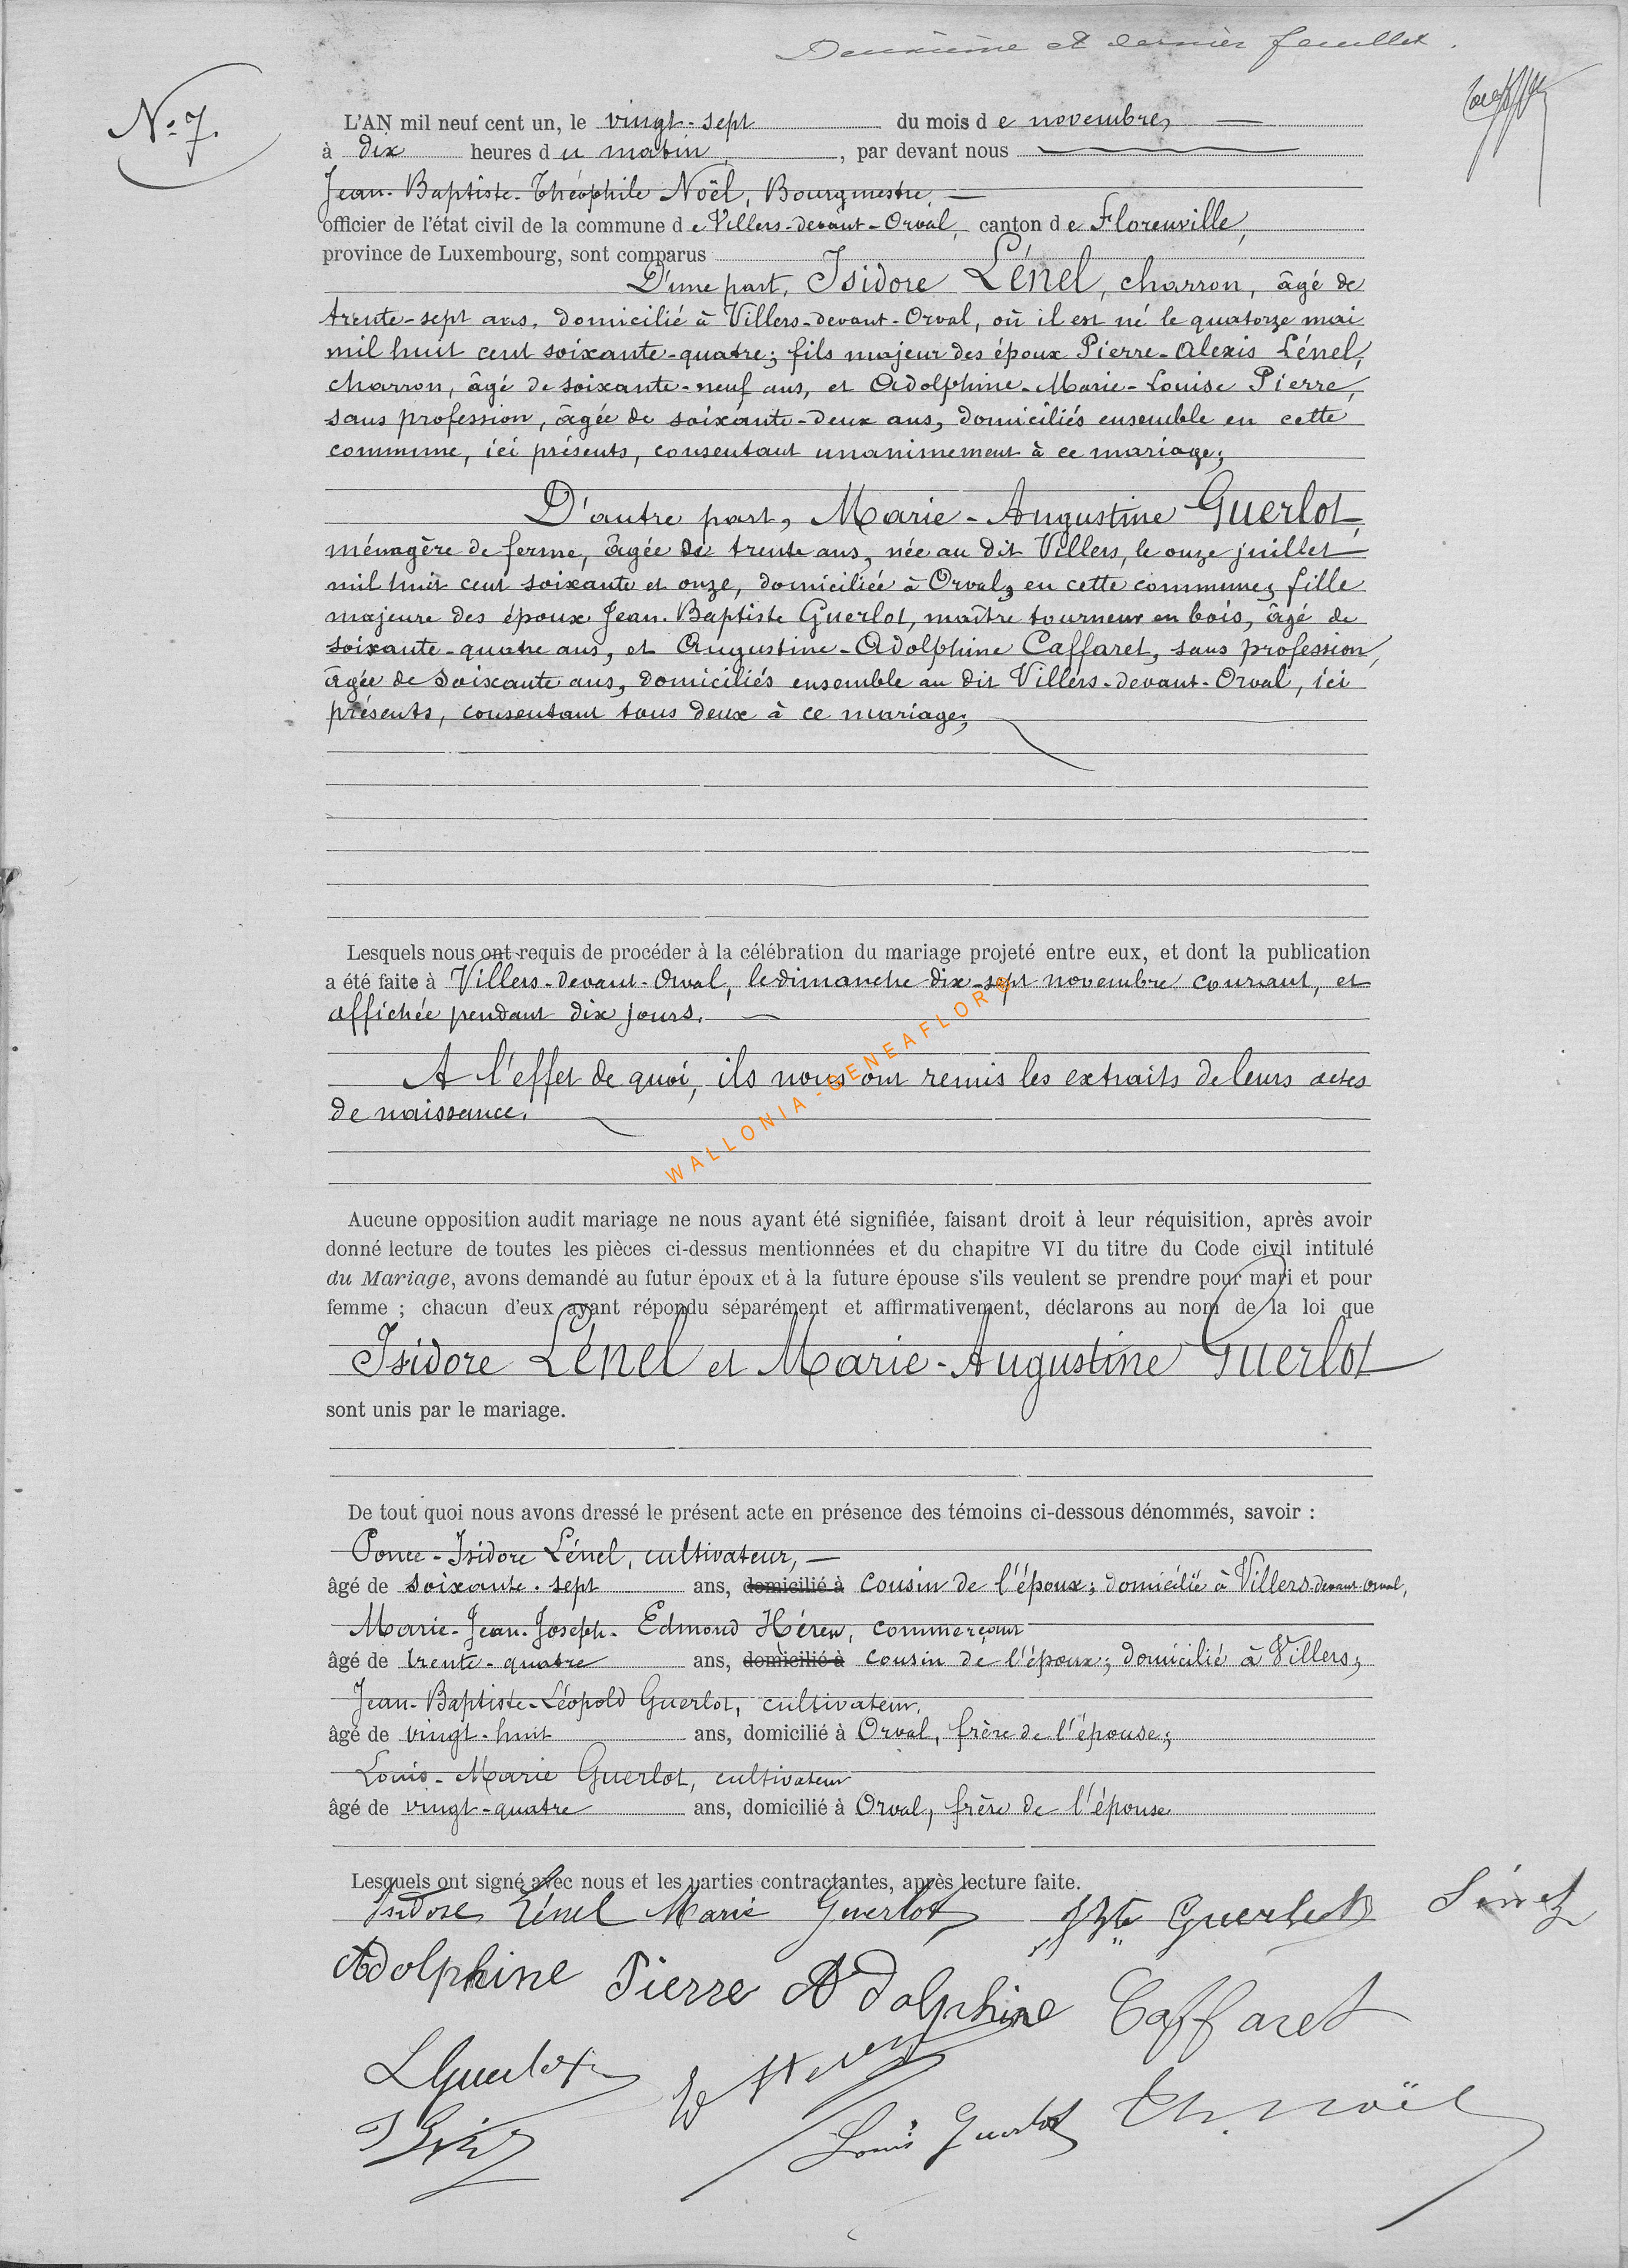 Deuxième et dernier feuillet.
N:7.
L'AN mil neuf cent un, le vingt-sept du mois de novembre,
à dix heures du matin, par devant nous
Jean-Baptiste-Théophile Noël, Bourgmestre,
officier de l'état civil de la commune de Villers-devant-Orval, canton de Florenville,
province de Luxembourg, sont comparus
D'une part, Isidore Lénel, charron, âgé de
trente-sept ans, domicilié à Villers-devant-Orval, où il est né le quatorze mai
mil huit cent soixante-quatre; fils majeur des époux Pierre-Alexis Lénel,
charron, âgé de soixante-neuf ans, et Adolphine-Marie-Louise Pierre,
sans profession, âgée de soixante-deux ans, domiciliés ensemble en cette
commune, ici présents, consentant unanimement à ce mariage;
D'autre part, Marie-Augustine Guerlot,
ménagère de ferme, âgée de trente ans, née au dit Villers, le onze juillet
mil huit cent soixante et onze, domiciliée à Orval, en cette commune; fille
majeure des époux Jean-Baptiste Guerlot, maître tourneur en bois, âgé de
soixante-quatre ans, et Augustine-Adolphine Caffaret, sans profession,
âgée de soixante ans, domiciliés ensemble au dit Villers-devant-Orval, ici
présents, consentant tous deux à ce mariage;
Lesquels nous ont requis de procéder à la célébration du mariage projeté entre eux, et dont la publication
a été faite à Villers-devant-Orval, le dimanche dix-sept novembre courant, et
affichée pendant dix jours.
A l'effet de quoi, ils nous ont remis les extraits de leurs actes
de naissance.
WALLONIA-GENEAFLORE
Aucune opposition audit mariage ne nous ayant été signifiée, faisant droit à leur réquisition, après avoir
donné lecture de toutes les pièces ci-dessus mentionnées et du chapitre VI du titre du Code civil intitulé
du Mariage, avons demandé au futur époux et à la future épouse s'ils veulent se prendre pour mari et pour
femme ; chacun d'eux ayant répondu séparément et affirmativement, déclarons au nom de la loi que
Isidore Lénel et Marie-Augustine Guerlot
sont unis par le mariage.
De tout quoi nous avons dressé le présent acte en présence des témoins ci-dessous dénommés, savoir :
Ponce-Isidore Lénel, cultivateur,
âgé de soixante-sept ans, domicilié à cousin de l'époux; domicilié à Villers-devant-Orval,
Marie-Jean-Joseph-Edmond Héren, commerçant
âgé de trente-quatre ans, domicilié à cousin de l'époux; domicilié à Villers;
Jean-Baptiste-Léopold Guerlot, cultivateur,
âgé de vingt-huit ans, domicilié à Orval, frère de l'épouse;
Louis-Marie Guerlot, cultivateur
âgé de vingt-quatre ans, domicilié à Orval, frère de l'épouse
Lesquels ont signé avec nous et les parties contractantes, après lecture faite.
Isidore Lénel Marie Guerlot JBte Guerlot Lénel
Adolphine Pierre Adolphine Caffaret
LGuerlot
Louis Guerlot Th. Noël